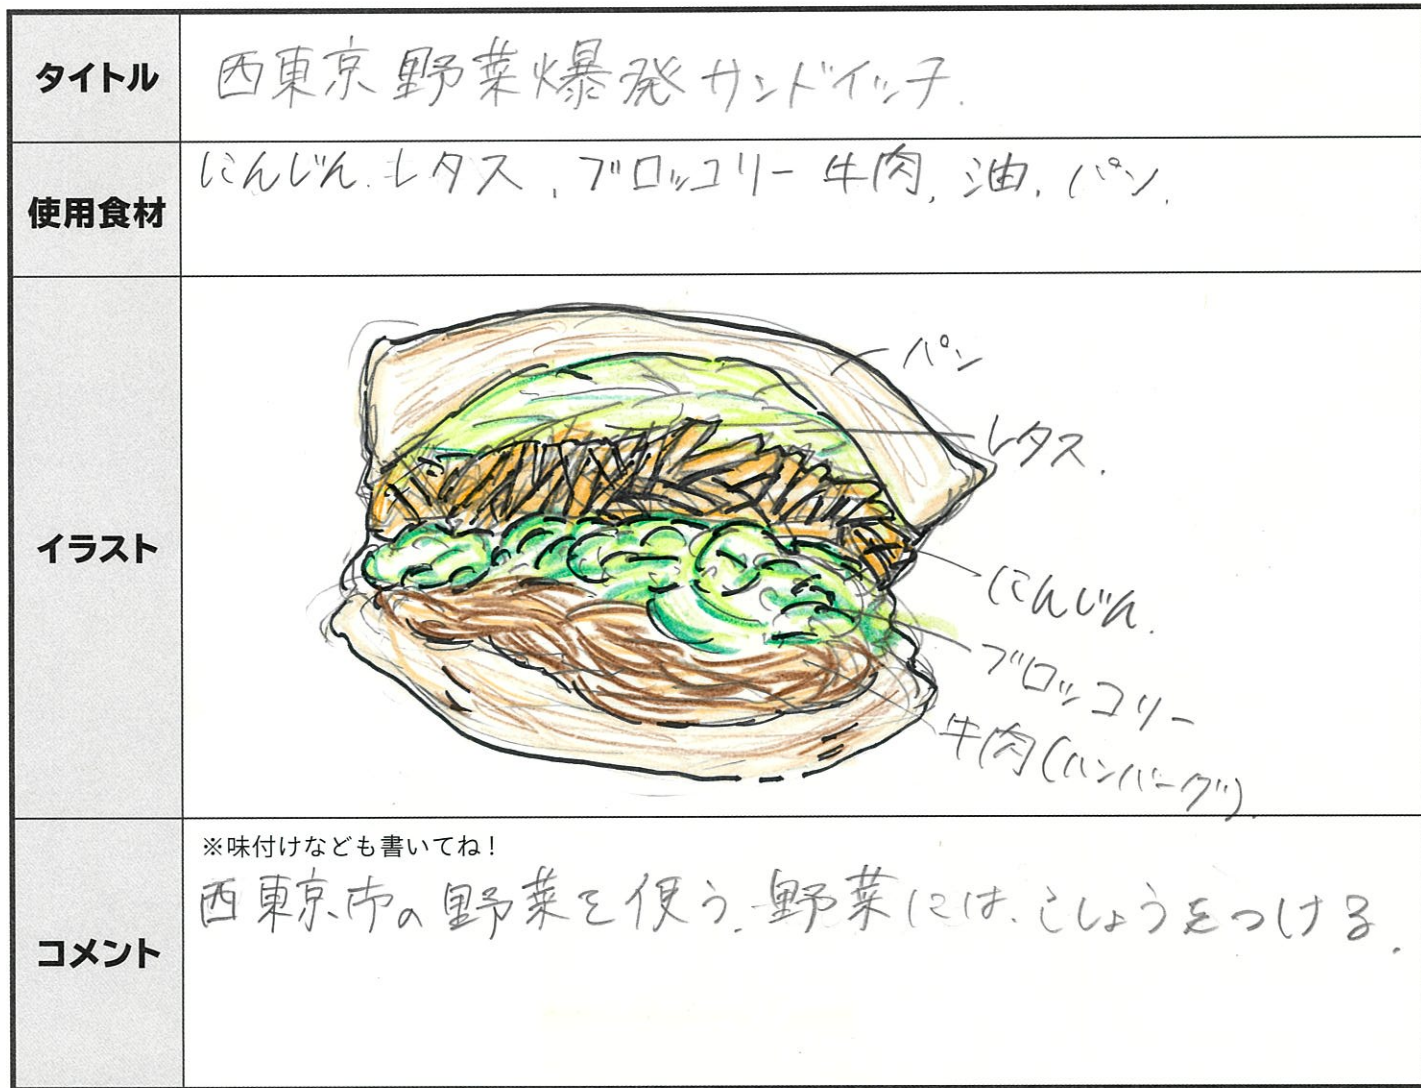 タイトル
西東京野菜爆発サンドイッチ.
使用食材
にんじん.レタス,ブロッコリー 牛肉,油,パン.
イラスト
パン
レタス.
にんじん.
ブロッコリー
牛肉(ハンバーグ).
コメント
※味付けなども書いてね!
西東京市の野菜を使う.野菜には、こしょうをつける.